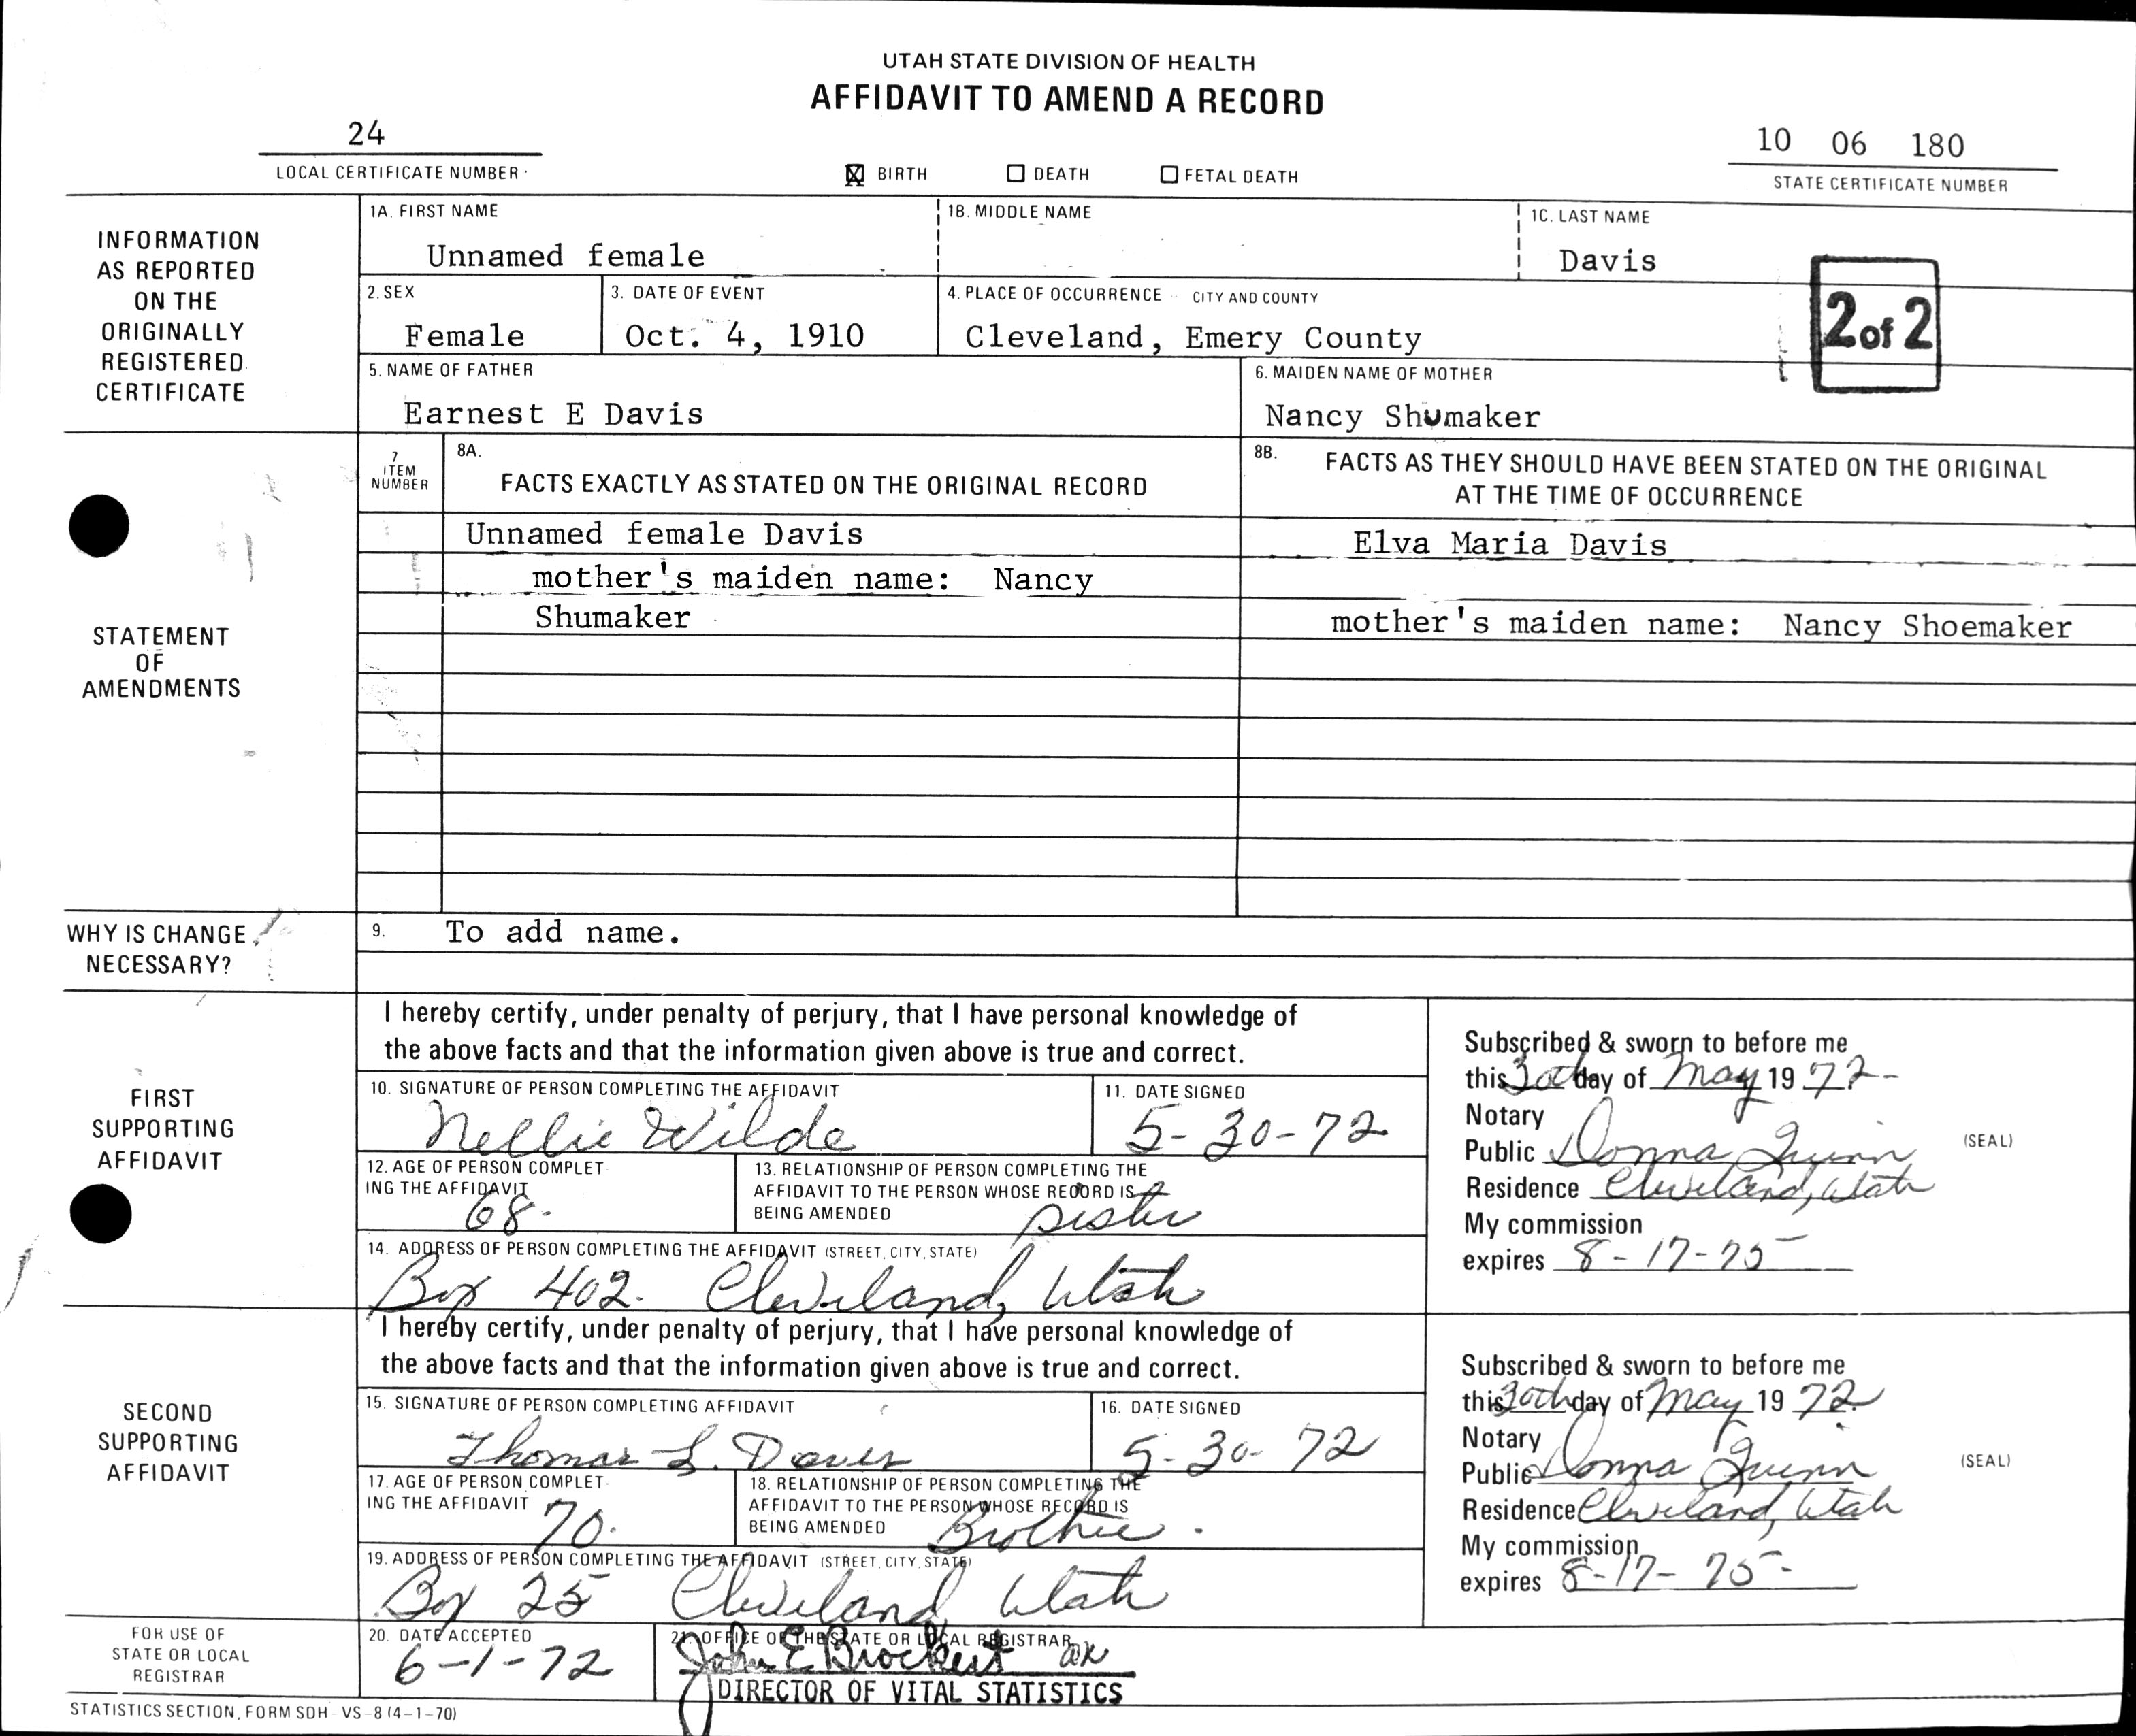 UTAH STATE DIVISION OF HEALTH
AFFIDAVIT TO AMEND A RECORD
24
LOCAL CERTIFICATE NUMBER
☒ BIRTH ☐ DEATH ☐ FETAL DEATH
10 06 180
STATE CERTIFICATE NUMBER
INFORMATION
AS REPORTED
ON THE
ORIGINALLY
REGISTERED
CERTIFICATE
1A. FIRST NAME
Unnamed female
1B. MIDDLE NAME
1C. LAST NAME
Davis
2. SEX
Female
3. DATE OF EVENT
Oct. 4, 1910
4. PLACE OF OCCURRENCE CITY AND COUNTY
Cleveland, Emery County
2 of 2
5. NAME OF FATHER
Earnest E Davis
6. MAIDEN NAME OF MOTHER
Nancy Shumaker
STATEMENT
OF
AMENDMENTS
7
ITEM
NUMBER
8A.
FACTS EXACTLY AS STATED ON THE ORIGINAL RECORD
8B. FACTS AS THEY SHOULD HAVE BEEN STATED ON THE ORIGINAL
AT THE TIME OF OCCURRENCE
Unnamed female Davis
Elva Maria Davis
mother's maiden name: Nancy
Shumaker
mother's maiden name: Nancy Shoemaker
WHY IS CHANGE
NECESSARY?
9. To add name.
FIRST
SUPPORTING
AFFIDAVIT
I hereby certify, under penalty of perjury, that I have personal knowledge of
the above facts and that the information given above is true and correct.
10. SIGNATURE OF PERSON COMPLETING THE AFFIDAVIT
Nellie Wilde
11. DATE SIGNED
5-30-72
12. AGE OF PERSON COMPLET-
ING THE AFFIDAVIT
68.
13. RELATIONSHIP OF PERSON COMPLETING THE
AFFIDAVIT TO THE PERSON WHOSE RECORD IS
BEING AMENDED
sister
14. ADDRESS OF PERSON COMPLETING THE AFFIDAVIT (STREET, CITY, STATE)
Box 402. Cleveland, Utah
Subscribed & sworn to before me
this 30th day of May 1972-
Notary
Public Donna Quinn
(SEAL)
Residence Cleveland, Utah
My commission
expires 8-17-75
SECOND
SUPPORTING
AFFIDAVIT
I hereby certify, under penalty of perjury, that I have personal knowledge of
the above facts and that the information given above is true and correct.
15. SIGNATURE OF PERSON COMPLETING AFFIDAVIT
Thomas L. Davis
16. DATE SIGNED
5-30-72
17. AGE OF PERSON COMPLET-
ING THE AFFIDAVIT
70.
18. RELATIONSHIP OF PERSON COMPLETING THE
AFFIDAVIT TO THE PERSON WHOSE RECORD IS
BEING AMENDED
Brother.
19. ADDRESS OF PERSON COMPLETING THE AFFIDAVIT (STREET, CITY, STATE)
Box 25 Cleveland Utah
Subscribed & sworn to before me
this 30th day of May 1972.
Notary
Public Donna Quinn
(SEAL)
Residence Cleveland, Utah
My commission
expires 8-17-75-
FOR USE OF
STATE OR LOCAL
REGISTRAR
20. DATE ACCEPTED
6-1-72
21. OFFICE OF THE STATE OR LOCAL REGISTRAR
John E Brockert
DIRECTOR OF VITAL STATISTICS
STATISTICS SECTION, FORM SDH-VS-8 (4-1-70)